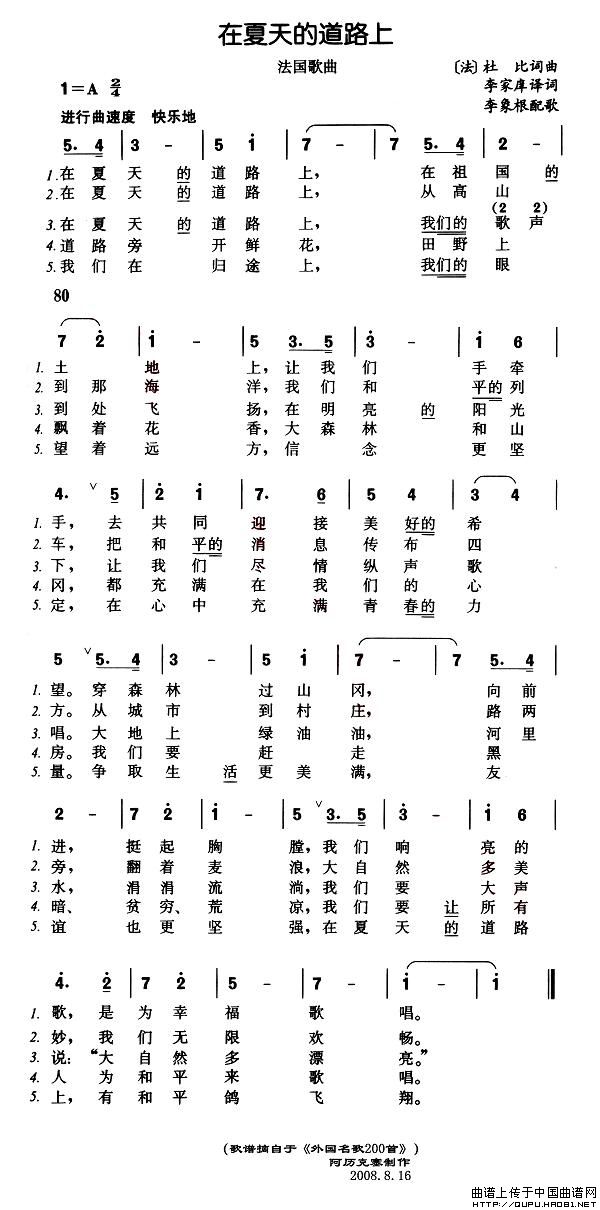 在夏天的道路上
法国歌曲
〔法〕杜 比词曲
1=A 2/4
李家庠译词
进行曲速度 快乐地
李象根配歌
5. 4 | 3 - | 5 i | 7 - | 7 5. 4 | 2 - |
1.在夏天的道路上, 在祖国的
2.在夏天的道路上, 从高山
(2 2)
3.在夏天的道路上, 我们的歌声
4.道路旁开鲜花, 田野上
5.我们在归途上, 我们的眼
80
7 2 | i - | 5 3. 5 | 3 - | i 6 |
1.土地上,让我们手牵
2.到那海洋,我们和平的列
3.到处飞扬,在明亮的阳光
4.飘着花香,大森林和山
5.望着远方,信念更坚
4. ∨ 5 | 2 i | 7. 6 | 5 4 | 3 4 |
1.手,去共同迎接美好的希
2.车,把和平的消息传布四
3.下,让我们尽情纵声歌
4.冈,都充满在我们的心
5.定,在心中充满青春的力
5 ∨ 5. 4 | 3 - | 5 i | 7 - | 7 5. 4 |
1.望。穿森林过山冈, 向前
2.方。从城市到村庄, 路两
3.唱。大地上绿油油, 河里
4.房。我们要赶走黑
5.量。争取生活更美满, 友
2 - | 7 2 | i - | 5 ∨ 3. 5 | 3 - | i 6 |
1.进,挺起胸膛,我们响亮的
2.旁,翻着麦浪,大自然多美
3.水,涓涓流淌,我们要大声
4.暗、贫穷、荒凉,我们要让所有
5.谊也更坚强,在夏天的道路
4. 2 | 7 2 | 5 - | 7 - | i - | i ‖
1.歌,是为幸福歌唱。
2.妙,我们无限欢畅。
3.说:“大自然多漂亮。”
4.人为和平来歌唱。
5.上,有和平鸽飞翔。
(歌谱摘自于《外国名歌200首》)
阿历克塞制作
2008.8.16
曲谱上传于中国曲谱网
HTTP://QUPU.HAO81.NET